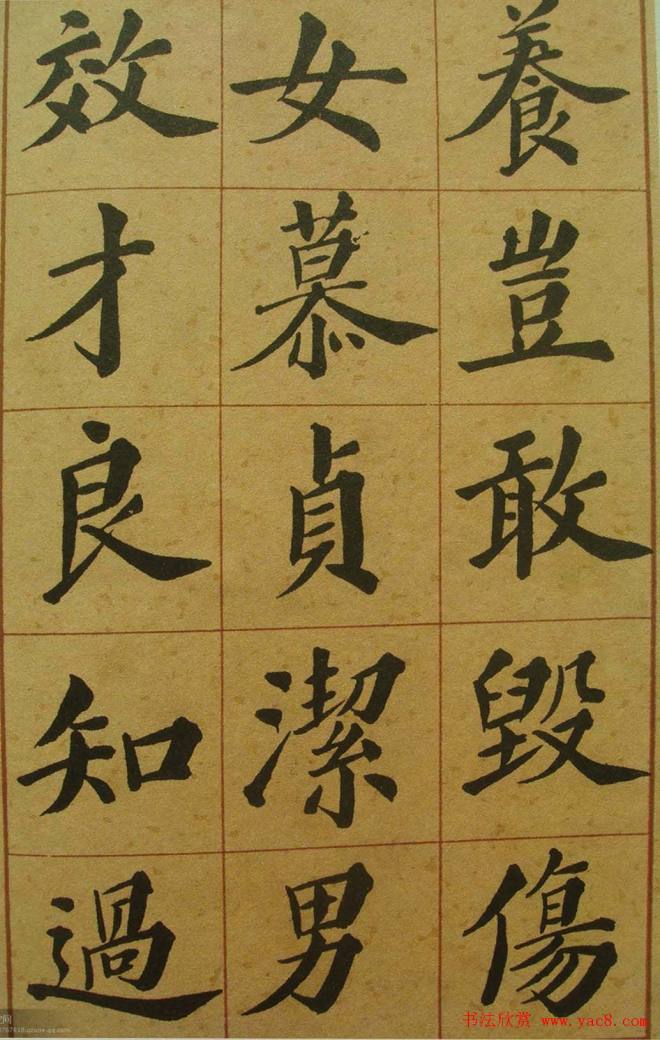 養豈敢毀傷
女慕貞潔男
效才良知過
书法欣赏 www.yac8.com